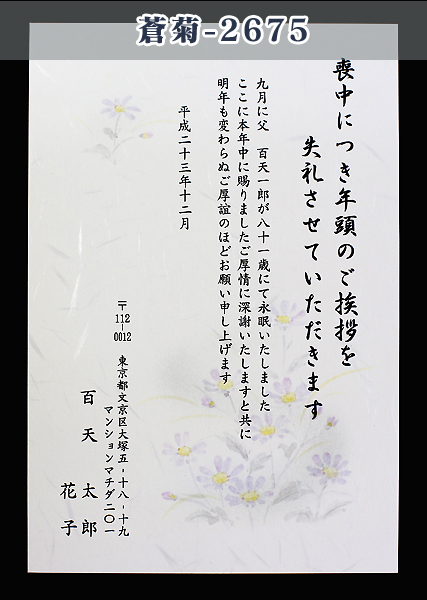 蒼菊-2675
喪中につき年頭のご挨拶を
失礼させていただきます
九月に父　百天一郎が八十一歳にて永眠いたしました
ここに本年中に賜りましたご厚情に深謝いたしますと共に
明年も変わらぬご厚誼のほどお願い申し上げます
平成二十三年十二月
〒112-0012
東京都文京区大塚五-十八-十九
マンションマチダ二〇一
百天　太郎
花子